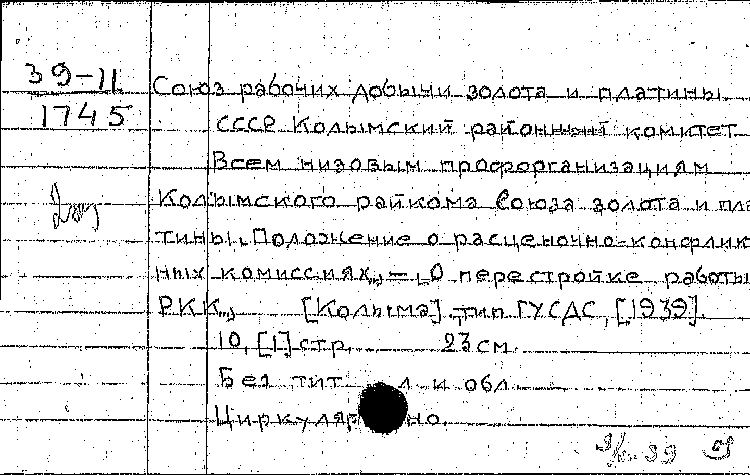 39-11
1745
Союз рабочих добычи золота и платины
СССР Колымский районный комитет
Всем низовым проформанизациям
Колымского райкома Союза золота и пла
тины. „Положение о расценочно-конфликт
ных комиссиях„ — „О перестройке работы
РКК„ [Колыма] тип ГУСДС, [1939].
10, [1] стр. 23 см.
Без тит. л и обл
Циркулярно.
39